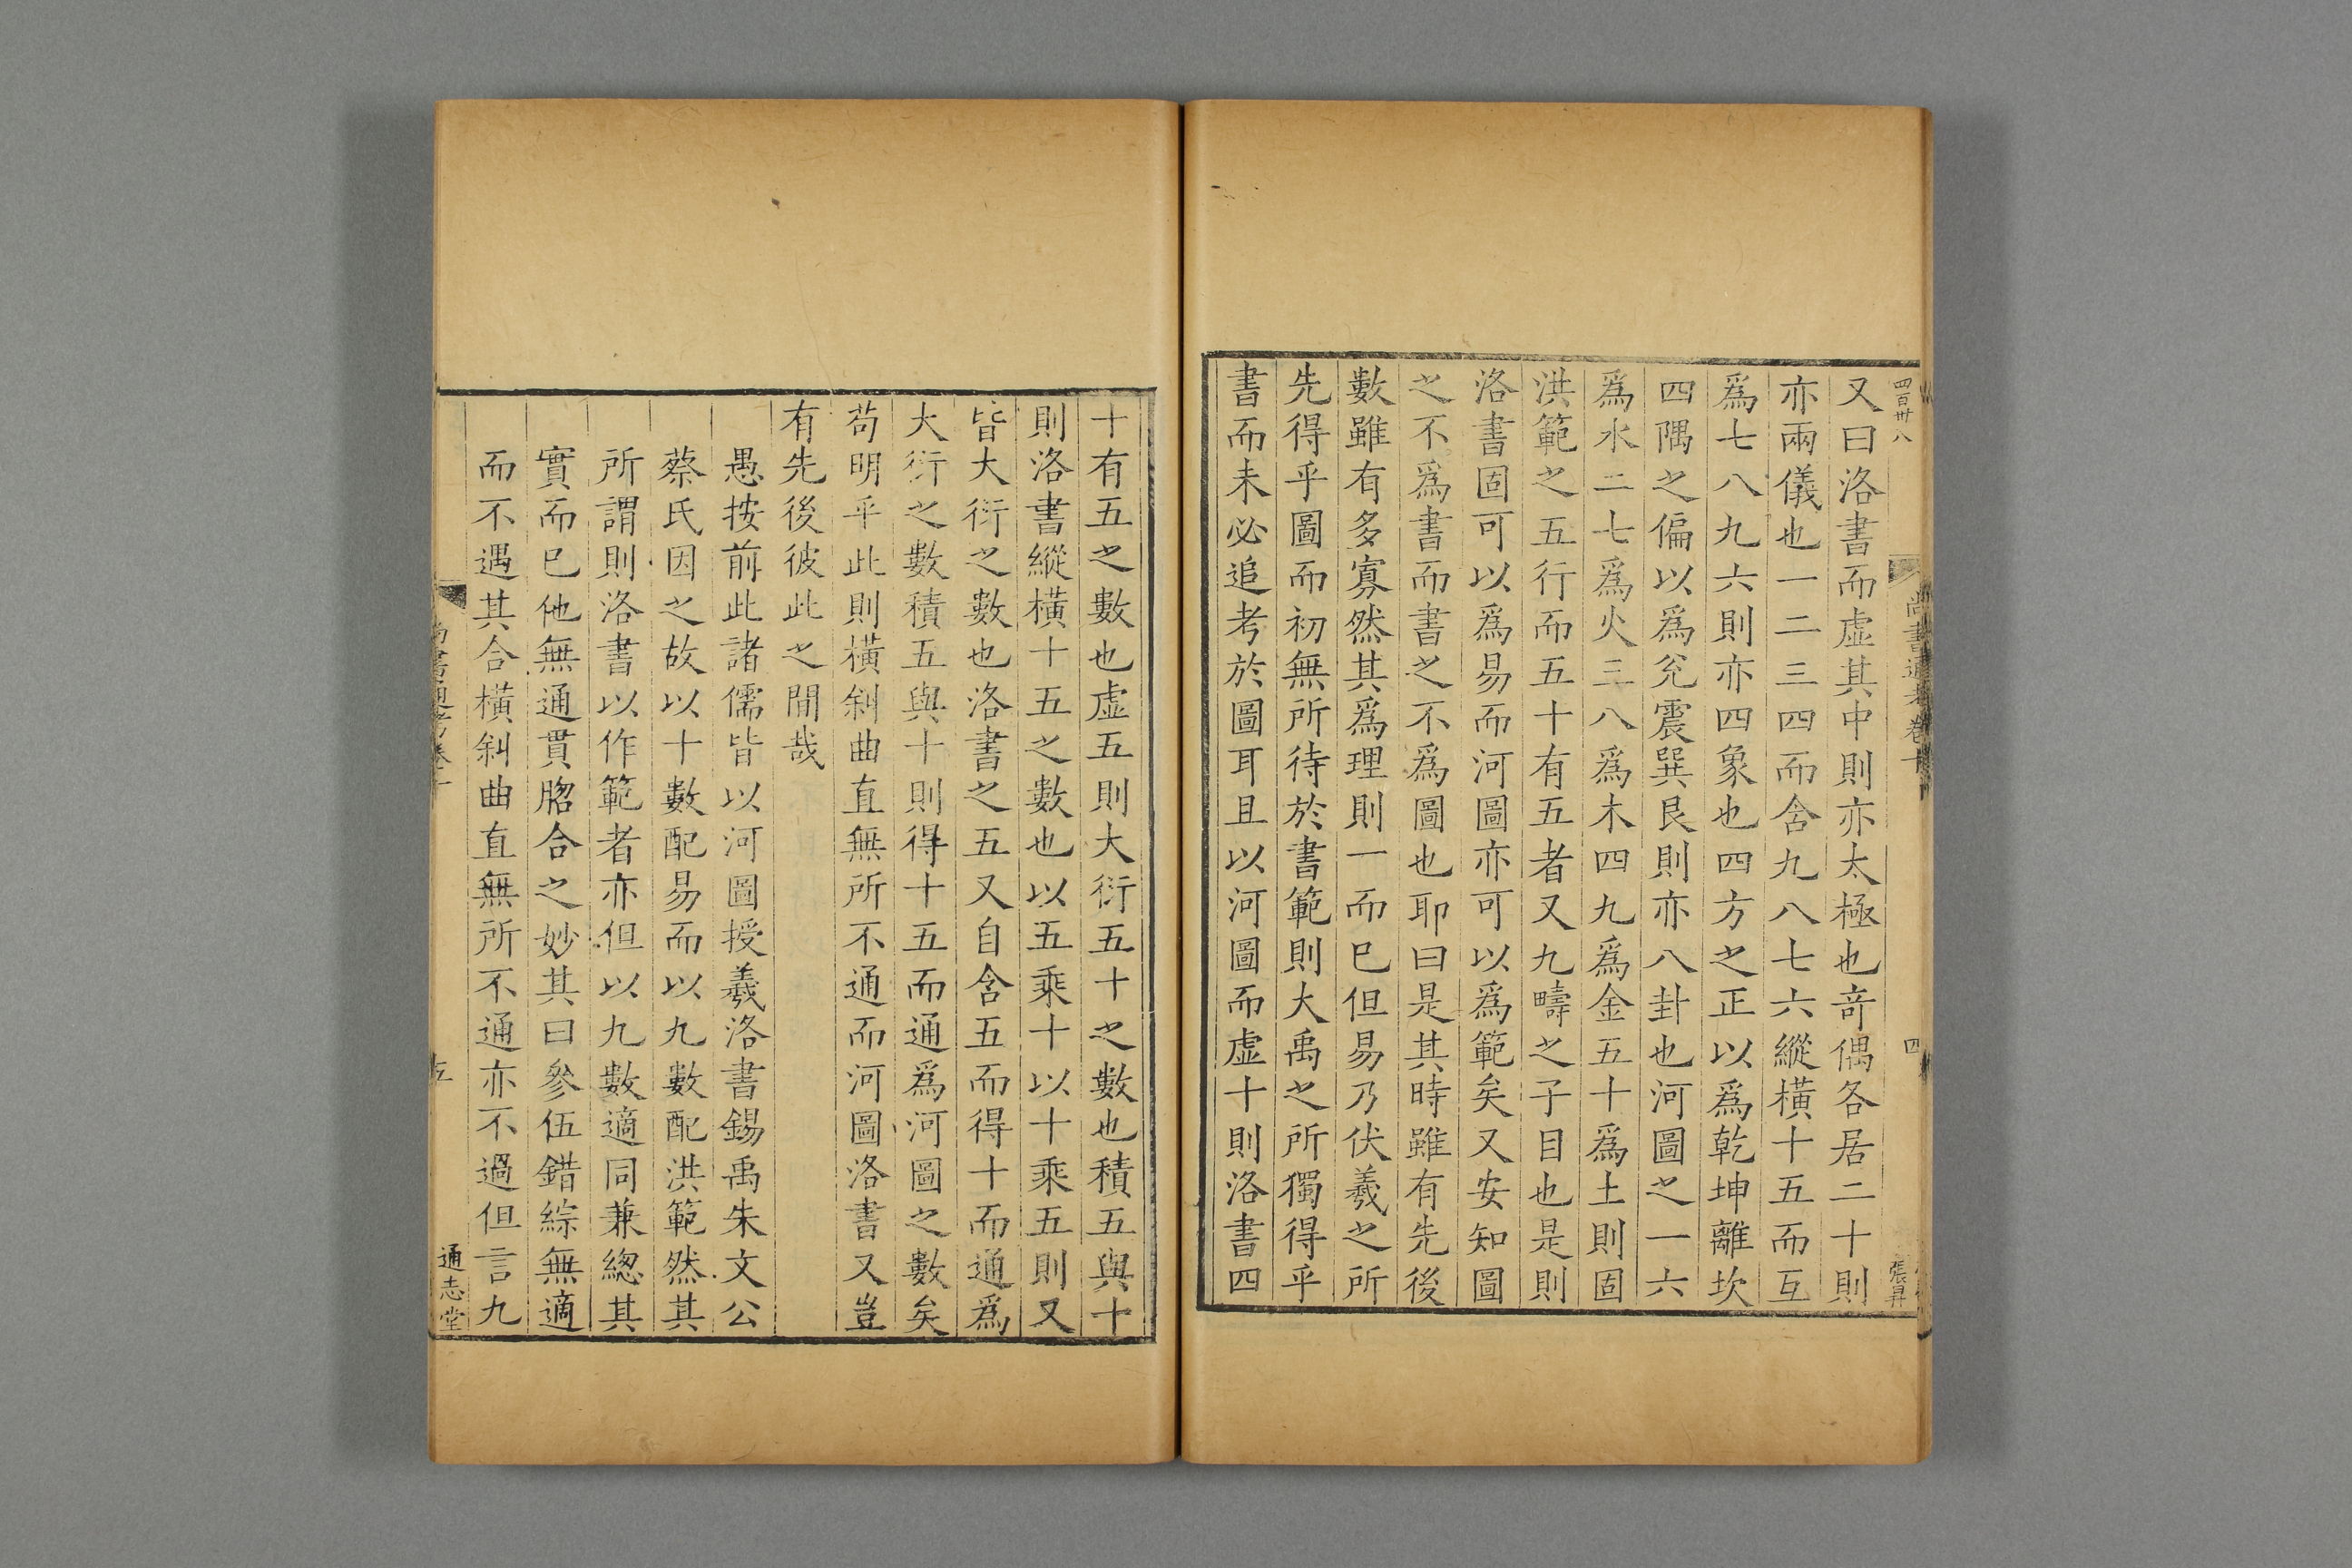 四百卅八
尚書通考卷十
四
張昇
又曰洛書而虛其中則亦太極也竒偶各居二十則
亦兩儀也一二三四而含九八七六縱橫十五而互
爲七八九六則亦四象也四方之正以爲乾坤離坎
四隅之偏以爲兌震巽艮則亦八卦也河圖之一六
爲水二七爲火三八爲木四九爲金五十爲土則固
洪範之五行而五十有五者又九疇之子目也是則
洛書固可以爲易而河圖亦可以爲範矣又安知圖
之不爲書而書之不爲圖也耶曰是其時雖有先後
數雖有多寡然其爲理則一而巳但易乃伏羲之所
先得乎圖而初無所待於書範則大禹之所獨得乎
書而未必追考於圖耳且以河圖而虛十則洛書四
十有五之數也虛五則大衍五十之數也積五與十
則洛書縱橫十五之數也以五乘十以十乘五則又
皆大衍之數也洛書之五又自含五而得十而通爲
大衍之數積五與十則得十五而通爲河圖之數矣
苟明乎此則橫斜曲直無所不通而河圖洛書又豈
有先後彼此之閒哉
愚按前此諸儒皆以河圖授羲洛書錫禹朱文公
蔡氏因之故以十數配易而以九數配洪範然其
所謂則洛書以作範者亦但以九數適同兼總其
實而巳他無通貫脗合之妙其曰參伍錯綜無適
而不遇其合橫斜曲直無所不通亦不過但言九
尚書通考卷十
五
通志堂